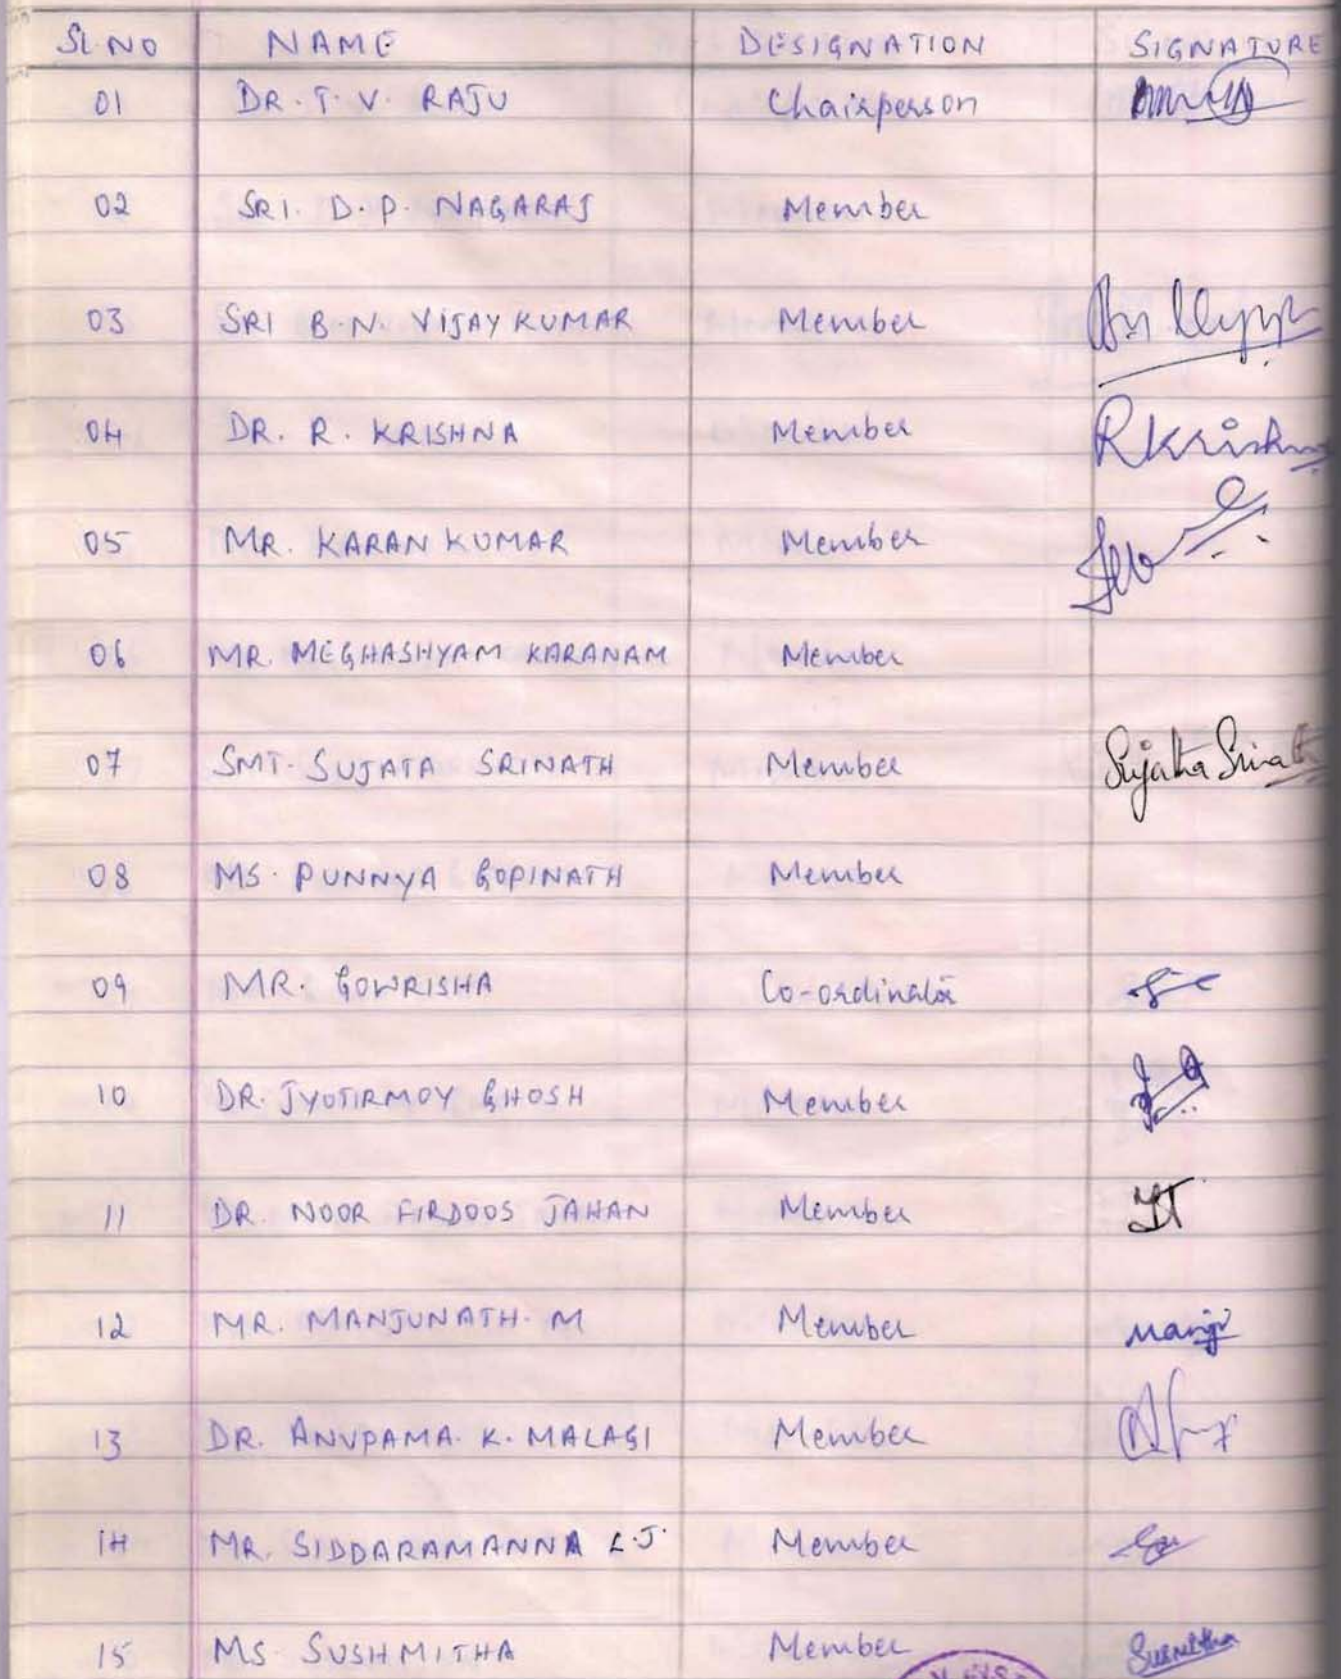 SL.NO NAME DESIGNATION SIGNATURE
01 DR. T. V. RAJU Chairperson
02 SRI. D.P. NAGARAJ Member
03 SRI B.N. VIJAY KUMAR Member
04 DR. R. KRISHNA Member RKrishna
05 MR. KARAN KUMAR Member
06 MR. MEGHASHYAM KARANAM Member
07 SMT. SUJATA SRINATH Member Sujatha Srinath
08 MS. PUNNYA GOPINATH Member
09 MR. GOWRISHA Co-ordinator
10 DR. JYOTIRMOY GHOSH Member
11 DR. NOOR FIRDOOS JAHAN Member
12 MR. MANJUNATH. M Member Manju
13 DR. ANUPAMA. K. MALAGI Member
14 MR. SIDDARAMANNA L.J. Member
15 MS. SUSHMITHA Member Susmitha